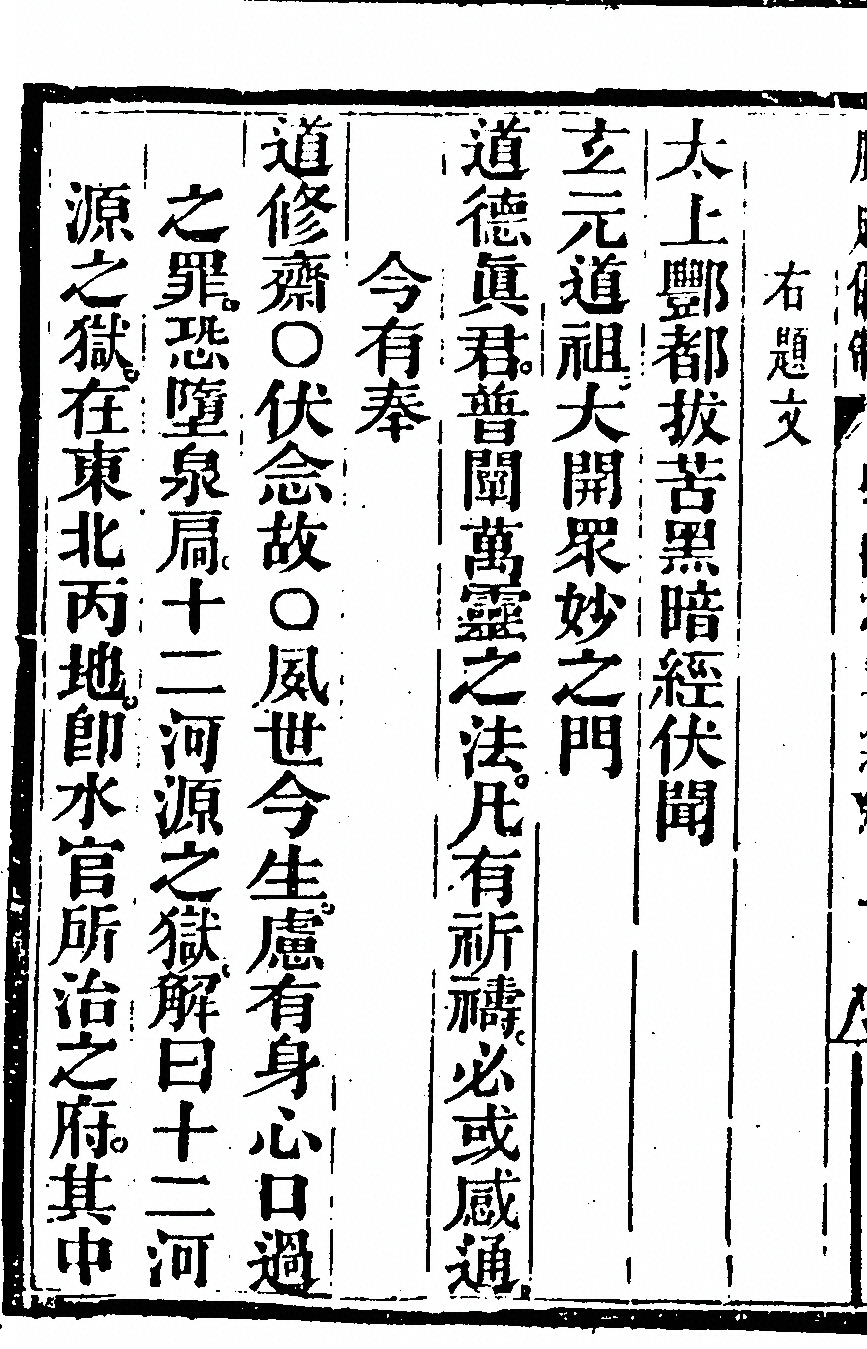 右題文
太上酆都拔苦黑暗經伏聞
玄元道祖。大開眾妙之門
道德眞君。普闡萬靈之法。凡有祈禱。必或感通。
今有奉
道修齋〇伏念故〇夙世今生。慮有身心口過
之罪。恐墮泉扃。十二河源之獄。解曰十二河
源之獄。在東北丙地。卽水官所治之府。其中